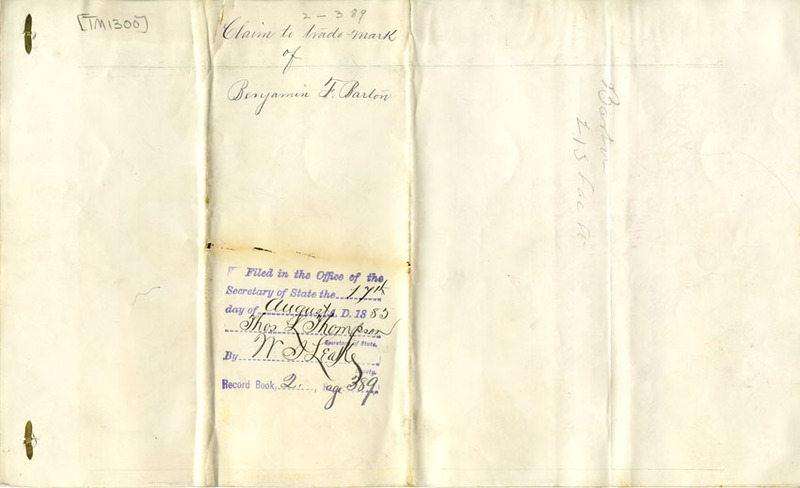 [TM1300]
2-389
Claim to trade-mark
of
Benjamin F. Barton
Filed in the Office of the
Secretary of State the 17th
day of August A. D. 1883
Thos L Thompson
Secretary of State.
By W J Leake
Deputy.
Record Book, 2, Page 389
Barton
213